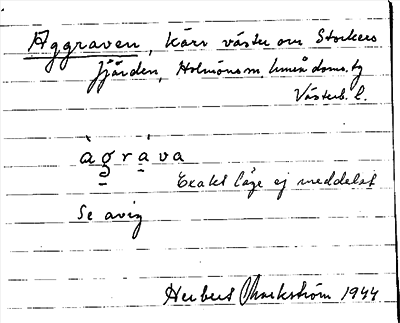 Aggraven, Kärr väster om Stockers
fjärden, Holmöns sn. Umeå doms. tg
Västerb. l.
àgráva
Exakt läge ej meddelat
Se avig
Herbert Markström 1944